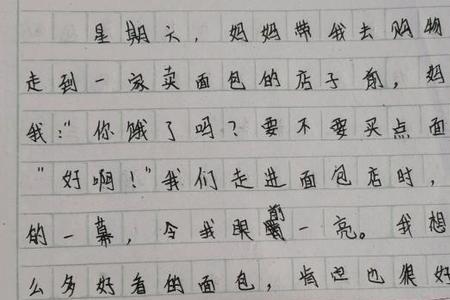 星期六，妈妈带我去购物
走到一家卖面包的店子前，妈
我："你饿了吗？要不要买点面
"好啊！"我们走进面包店时，
的一幕，令我眼前一亮。我想
么多好看的面包，肯定也很好